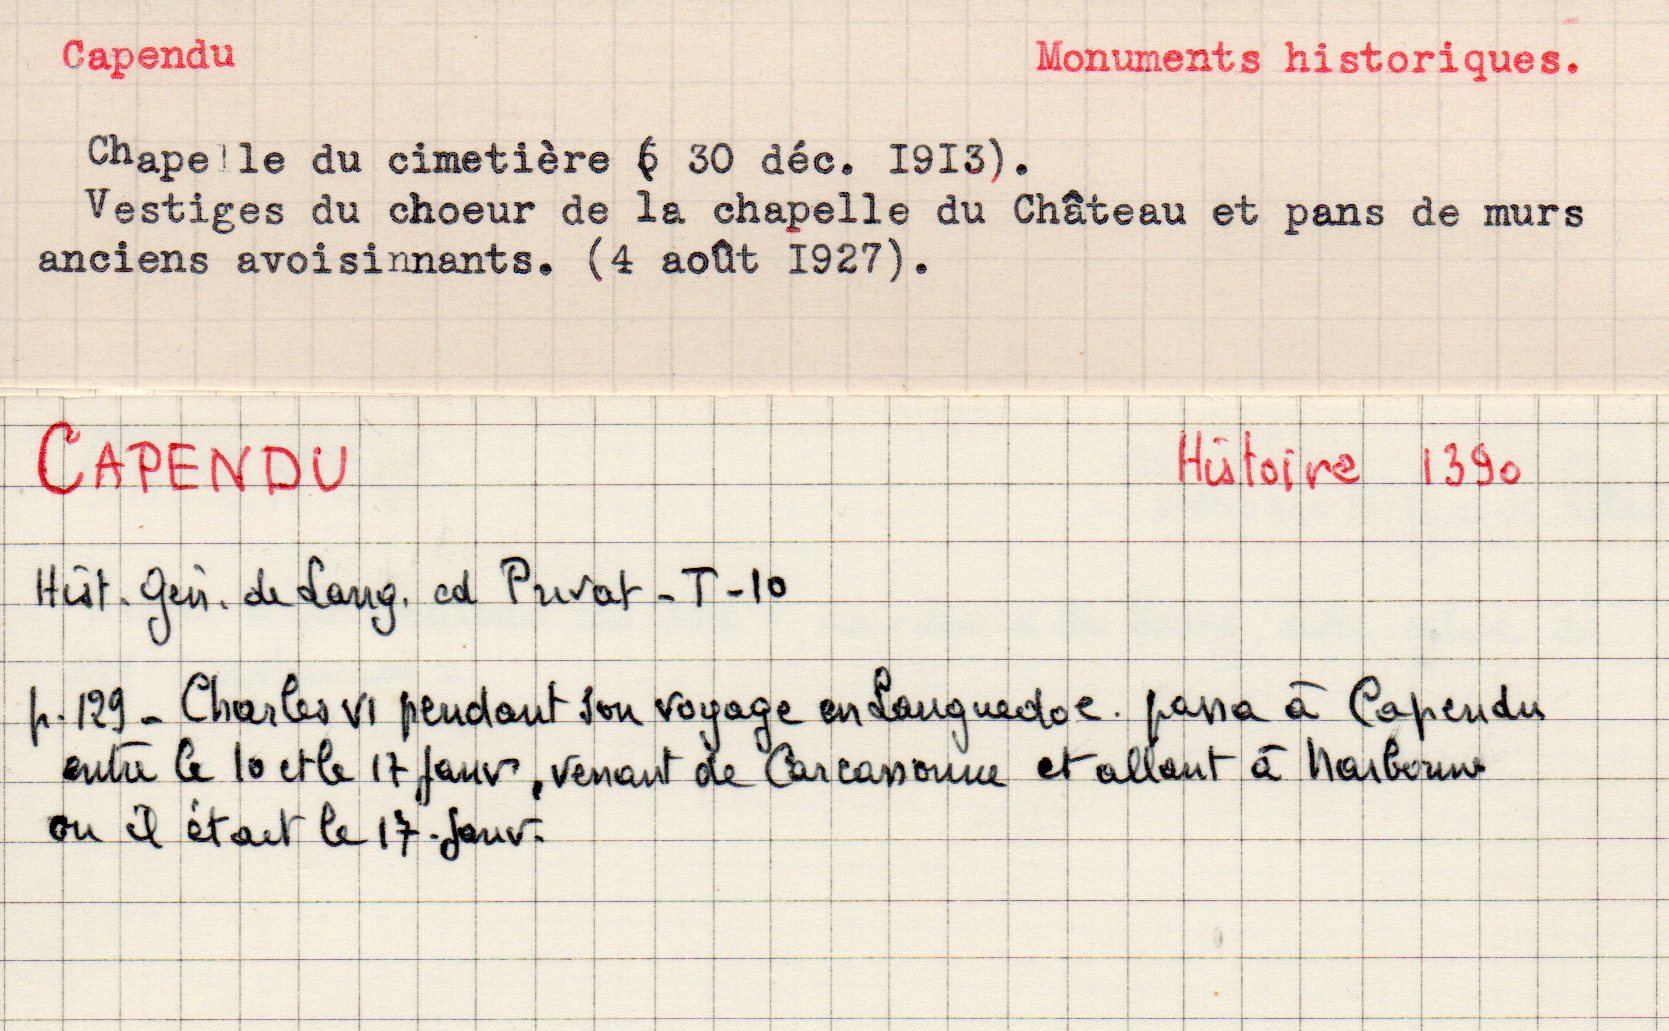 Capendu Monuments historiques.
Chapelle du cimetière ( 30 déc. I9I3).
Vestiges du choeur de la chapelle du Château et pans de murs
anciens avoisinnants. (4 août I927).
CAPENDU Histoire 1390
Hist. Gén. de Lang. ed Privat - T - 10
p. 129 - Charles VI pendant son voyage en Languedoc. passa à Capendu
entre le 10 et le 17 janv, venant de Carcassonne et allant à Narbonne
ou il était le 17 janv.